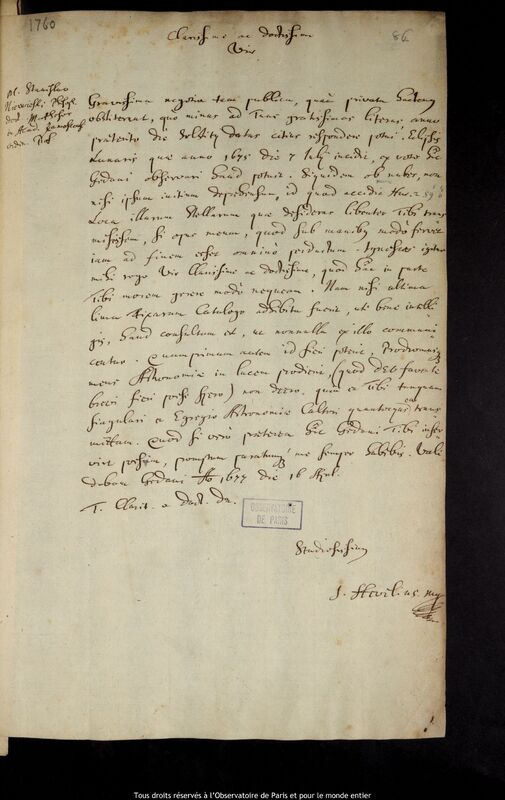 1760
86.
Clarissime ac doctissime
Vir
M. Stanislao
Acad.
Gravissima negotia tam publica, quam privata hactenus
obstiterunt, quo minus ad Tuas gratissimas literas anno
praeterito die datas citius respondere potui. Eclypsis
Lunaris quae anno 1675 die 7 Julij incidit, ex voto hic
Gedani observari haud potuit. Siquidem ob nubes, non
nisi ipsum initium deprehensum, id quod accidit Hor. 2
Loca illarum Stellarum quae desideras libenter Tibi trans
misissem, si opus meum, quod sub manibus modo fervet
iam ad finem esset omnino perductum. Ignoscas igitur
mihi rogo Vir Clarissime ac doctissime, quod hac in parte
Tibi morem gerere modo nequeam. Nam nisi ultima
lima Fixarum Catalogo adhibita fuerit, uti bene intelli
gis, haud consultum est, ut nonnulla ex illo communi
centur. Quamprimum autem id fieri poterit, Prodromusque
meus Astronomiae in lucem prodierit (quod Deo favente
brevi fieri posse spero) non deero, quin Tibi tanquam
singulari ac Egregio Astronomiae Cultori quantocyus trans
mittam. Quod si vero praeterea hic Gedani Tibi inser
vire possim, promptum paratumque me semper habebis. Vale
dabam Gedani Ao 1677 die 16
T. Clarit. ac Doct. Dn.
OBSERVATOIRE
DE PARIS
Studiosissimus
J. Hevelius mp
Tous droits réservés à l'Observatoire de Paris et pour le monde entier